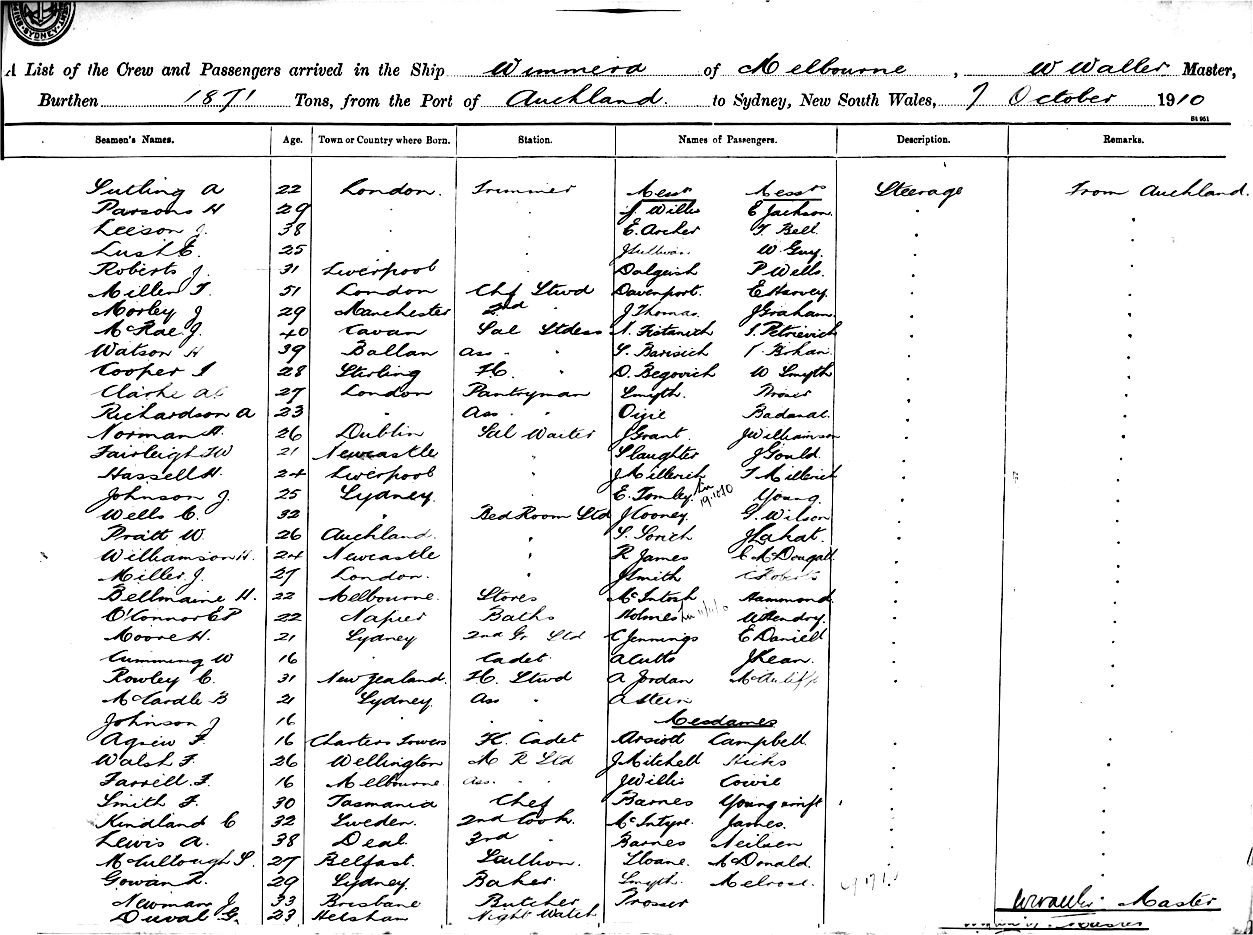 SYDNEY
A List of the Crew and Passengers arrived in the Ship Wimmera of Melbourne, W Waller Master,
Burthen 1871 Tons, from the Port of Auckland. to Sydney, New South Wales, 7 October 1910
Seamen's Names. Age. Town or Country where Born. Station. Names of Passengers. Description. Remarks.
Sutling A 22 London. Trimmer Messrs Messrs Steerage From Auckland.
Parsons H 29 " " J Willis E Jackson " "
Leeson J. 38 " " E. Archer T. Bell " "
Lush E. 25 " " J Sullivan W. Guy. " "
Roberts J. 31 Liverpool " Dalgeish P Wells. " "
Miller T. 51 London Chf Stwd Davenport. E Harvey. " "
Morley J 29 Manchester 2nd " J Thomas. J Graham. " "
McRae J. 40 Cavan Sal Stdess N. Fistanich S. Petrievich " "
Watson H 39 Ballan Ass " " S. Barisich Bohan. " "
Cooper 28 Stirling F.C. " D. Begovich W Smyth " "
Clarke AC 27 London Pantryman Smyth. " "
Richardson A 23 " Ass. " " "
Norman H. 26 Dublin Sal Waiter J Grant. J Williamson " "
Fairleigh FW 21 Newcastle " Slaughter J Gould. " "
Hassell H. 24 Liverpool " J Millerich T Millerich " "
Johnson J. 25 Sydney. " E. Tomley. Young. " "
Wells C. 32 " Bed Room Std J Cooney G. Wilson " "
Pratt W. 26 Auckland. " S. Sorich J Lahat. " "
Williamson H. 24 Newcastle " R James E McDougall " "
Miller J. 27 London. " J Smith C Roberts " "
Bellmaine H. 22 Melbourne. Stores McIntosh Hammond. " "
O'Connor EP 22 Napier Baths Holmes W Hendry. " "
Moore H. 21 Sydney 2nd Gr Std C Jennings E Daniell " "
Cumming W 16 " Cadet. A Cutts J Kean. " "
Rowley C. 31 New Zealand. F.C. Stwd A Jordan McAuliffe " "
McCardle B 21 Sydney. Ass " A Stein " "
Johnson J 16 " " " Mesdames " "
Agnew F. 16 Charters Towers F.C. Cadet Arscott Campbell " "
Walsh F. 26 Wellington M R Std J Mitchell Hicks " "
Farrell. F. 16 Melbourne Ass. " " J Willis Cowie " "
Smith F. 30 Tasmania Chef Barnes Youngswift " "
Kindland C 32 Sweden. 2nd Cook. McIntyre. James. " "
Lewis A. 38 Deal 3rd " Barnes Neilsen " "
McCullough S. 27 Belfast. Scullion. Sloane. McDonald. " "
Gowan R. 29 Sydney. Baker. Smyth. Melrose. "
Newman J. 33 Brisbane Butcher Prosser W Waller Master
Duval G. 23 Helsham Night Watch